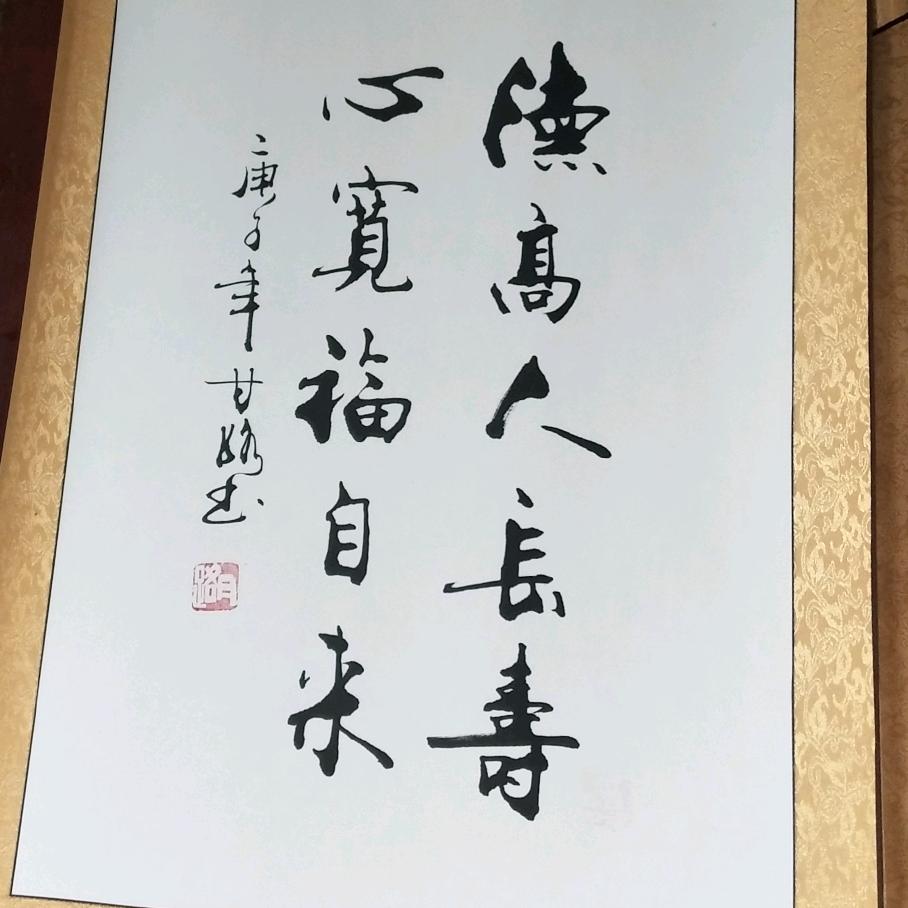 德高人長壽
心寬福自来
庚子年甘路书